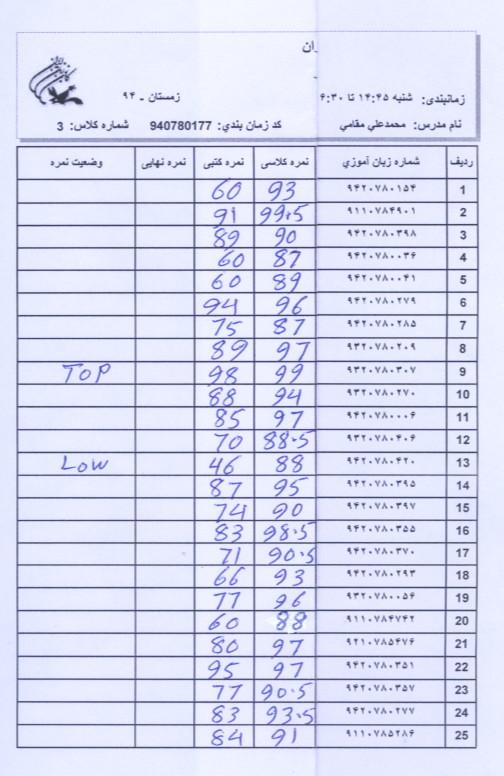 ران
زمانبندی: شنبه ۱۴:۴۵ تا ۶:۳۰ زمستان ـ ۹۴
نام مدرس: محمدعلي مقامي کد زمان بندي: 940780177 شماره کلاس: 3
ردیف شماره زبان آموزي نمره کلاسی نمره کتبی نمره نهایی وضعیت نمره
1 ۹۴۲۰۷۸۰۱۵۴ 93 60
2 ۹۱۱۰۷۸۴۹۰۱ 99.5 91
3 ۹۴۲۰۷۸۰۳۹۸ 90 89
4 ۹۴۲۰۷۸۰۰۳۶ 87 60
5 ۹۴۲۰۷۸۰۰۴۱ 89 60
6 ۹۴۲۰۷۸۰۲۷۹ 96 94
7 ۹۴۲۰۷۸۰۲۸۵ 87 75
8 ۹۳۲۰۷۸۰۲۰۹ 97 89
9 ۹۳۲۰۷۸۰۳۰۷ 99 98 TOP
10 ۹۳۲۰۷۸۰۲۷۰ 94 88
11 ۹۴۲۰۷۸۰۰۰۶ 97 85
12 ۹۳۲۰۷۸۰۴۰۶ 88.5 70
13 ۹۴۲۰۷۸۰۴۲۰ 88 46 Low
14 ۹۴۲۰۷۸۰۳۹۵ 95 87
15 ۹۴۲۰۷۸۰۳۹۷ 90 74
16 ۹۴۲۰۷۸۰۳۵۵ 98.5 83
17 ۹۴۲۰۷۸۰۳۷۰ 90.5 71
18 ۹۴۲۰۷۸۰۲۹۳ 93 66
19 ۹۳۲۰۷۸۰۰۵۶ 96 77
20 ۹۱۱۰۷۸۴۷۴۲ 88 60
21 ۹۲۱۰۷۸۵۴۷۶ 97 80
22 ۹۴۲۰۷۸۰۳۵۱ 97 95
23 ۹۴۲۰۷۸۰۳۵۷ 90.5 77
24 ۹۴۲۰۷۸۰۲۷۷ 93.5 83
25 ۹۱۱۰۷۸۵۲۸۶ 91 84